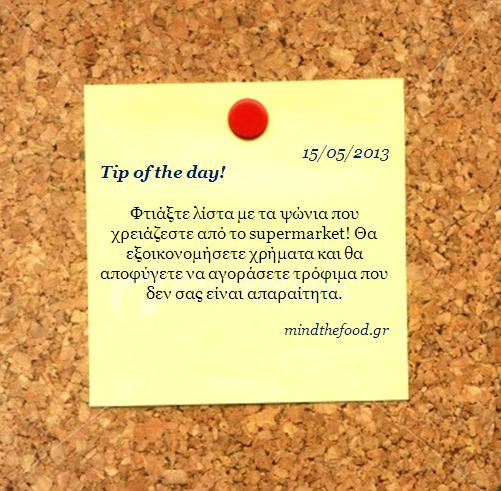 15/05/2013
Tip of the day!
Φτιάξτε λίστα με τα ψώνια που
χρειάζεστε από το supermarket! Θα
εξοικονομήσετε χρήματα και θα
αποφύγετε να αγοράσετε τρόφιμα που
δεν σας είναι απαραίτητα.
mindthefood.gr